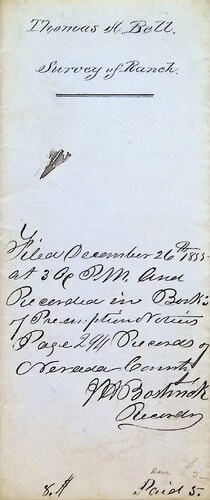 Thomas H. Bell.
Survey of Ranch.
Filed December 26th 1855
at 3 P.M. And
Recorded in Book 
of Preemption Notices
Page 294 Records of
Nevada County
Bostwick
Recorder
Paid 5.